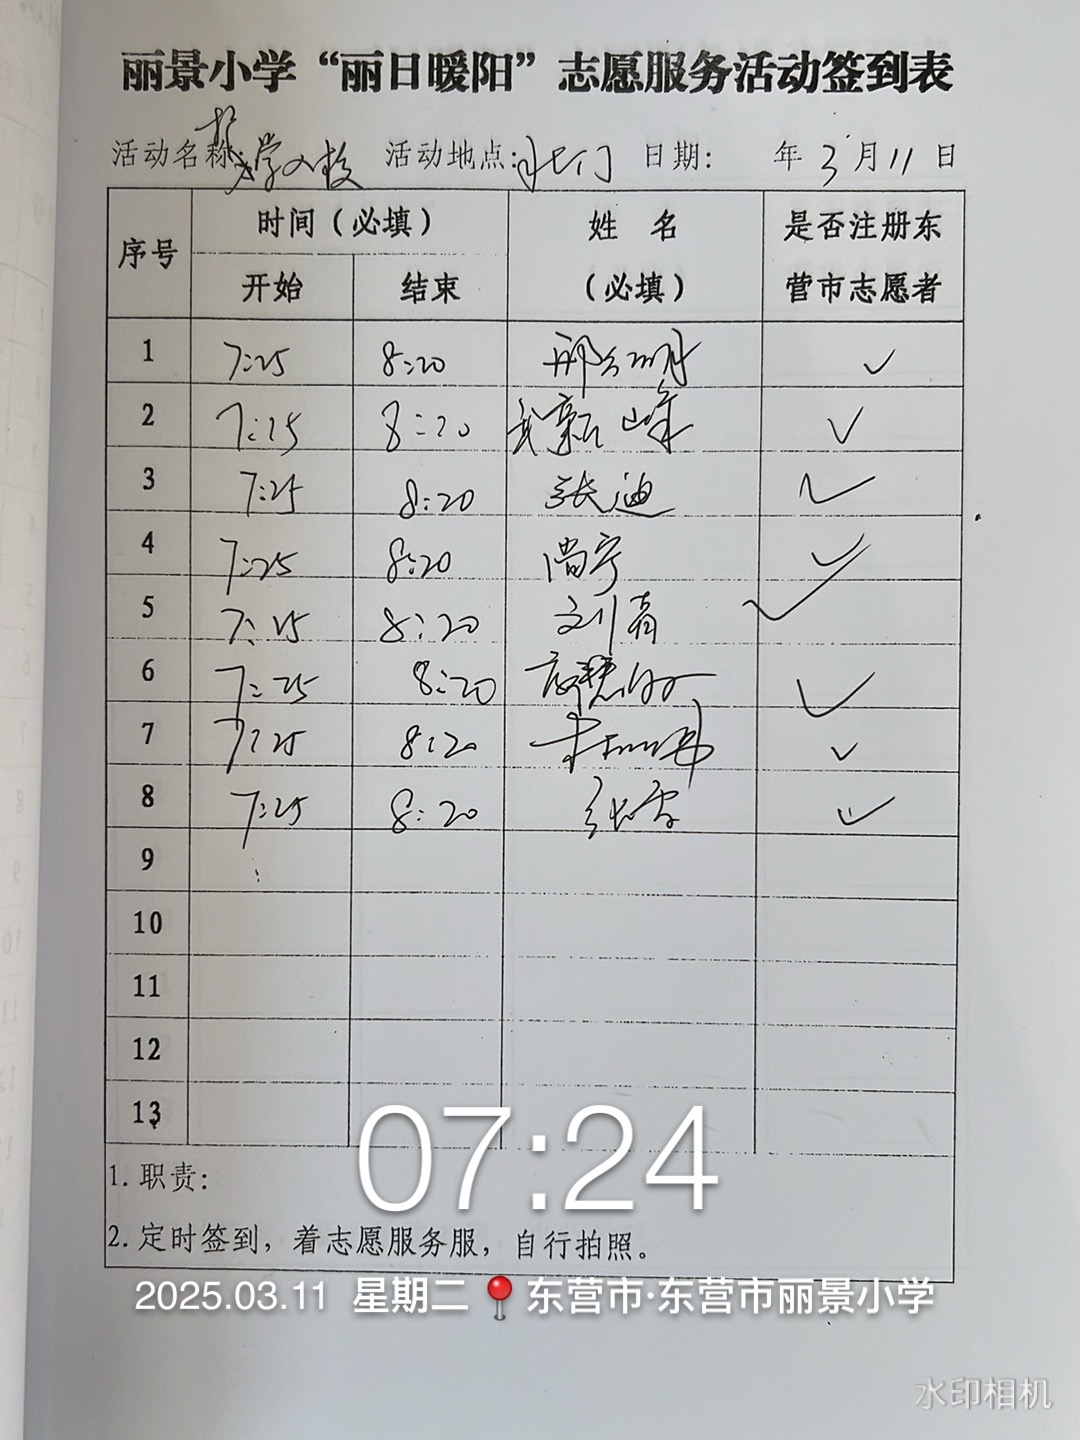 丽景小学“丽日暖阳”志愿服务活动签到表
活动名称: 学入校 活动地点: 北门 日期: 年 3 月 11 日
序号 时间（必填） 姓 名（必填） 是否注册东营市志愿者
开始 结束
1 7:25 8:20 ✓
2 7:25 8:20 峰 ✓
3 7:25 8:20 张迪 ✓
4 7:25 8:20 尚宁 ✓
5 7:25 8:20 刘青 ✓
6 7:25 8:20 ✓
7 7:25 8:20 ✓
8 7:25 8:20 张雪 ✓
9
10
11
12
13
1. 职责:
2. 定时签到，着志愿服务服，自行拍照。
07:24
2025.03.11 星期二 东营市·东营市丽景小学
水印相机